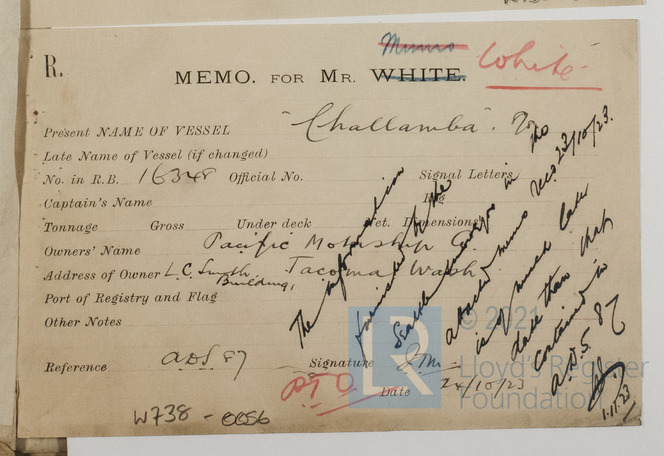 Munro
R. MEMO. FOR MR. WHITE. White
Present NAME OF VESSEL "Challamba".
Late Name of Vessel (if changed)
No. in R.B. 16348 Official No. Signal Letters
Captain's Name Rig
Tonnage Gross Under deck Net. Dimensions
Owners' Name Pacific Motorship Co
Address of Owner L.C. Smith Building, Tacoma Wash.
Port of Registry and Flag
Other Notes
Reference ADS 87 Signature
PTO Date 24/10/23
The information
furnished by the
Seattle Surveyors in
attached memo recd 23/10/23.
is of much later
date than that
contained in
A.D.S. 87
1.11.23
W738 - 0056
© 2021
LR
Lloyd's Register
Foundation